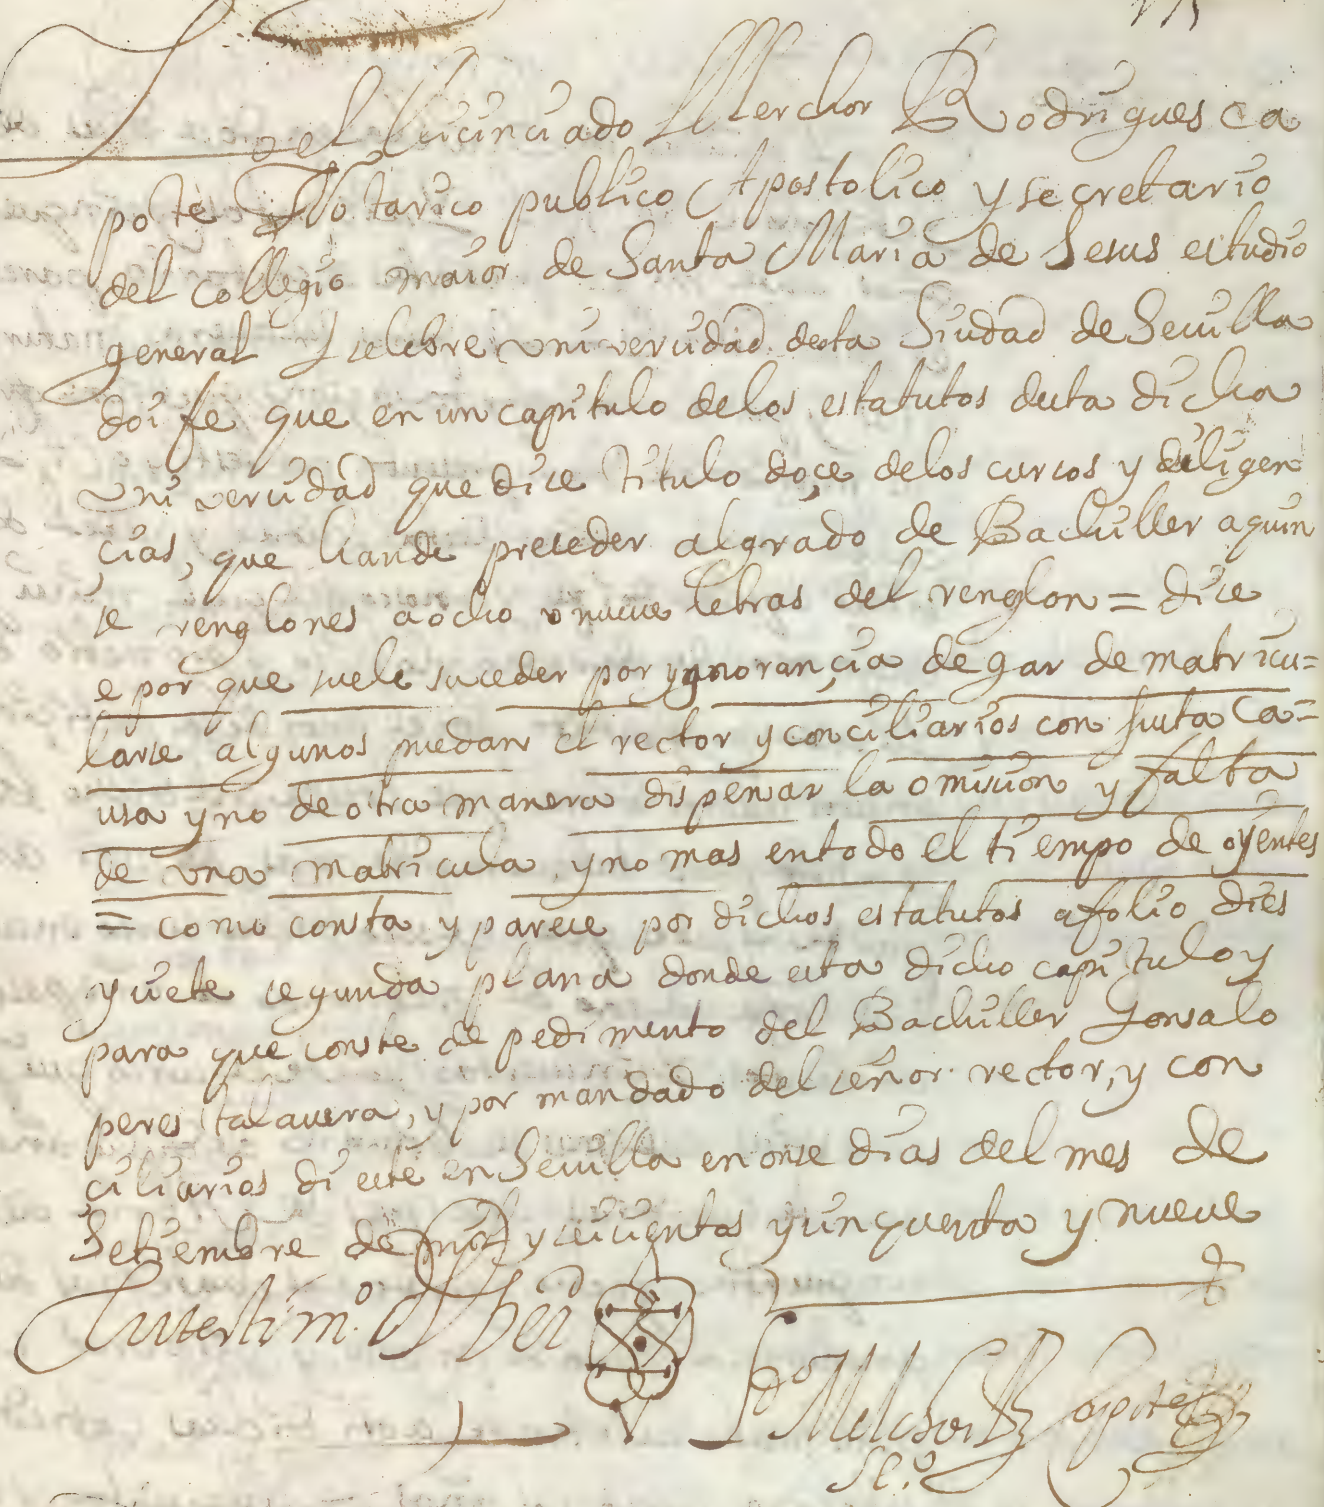 Yo el Licinciado Merchor Rodrigues ca
pote Notario publico Apostolico y secretario
del collegio maior de Santa Maria de Jesus estudio
general y celebre universidad desta Siudad de Sevilla
doi fe que en un capitulo de los estatutos desta dicha
universidad que dise titulo doçe de los cursos y diligen
çias, que hande preseder al grado de Bachiller a quin
se renglones a ocho o nueve letras del renglon = dise
e por que suele suceder por ygnorançia degar de matricu=
larse algunos puedan el rector y conciliarios con justa ca=
usa y no de otra manera dispensar la omision y falta
de una matricula y no mas en todo el tiempo de oyentes
= como consta y parese por dichos estatutos a folio dies
y siete segunda plana donde esta dicho capitulo y
para que conste de pedimiento del Bachiller Gonsalo
peres talavera, y por mandado del señor rector, y con
çiliarios di este en Sevilla en onse dias del mes de
Setiembre de mil y seisientos y sinquenta y nueve
En testimº de Verd
Ldo Melchor Rz Capote
Secº